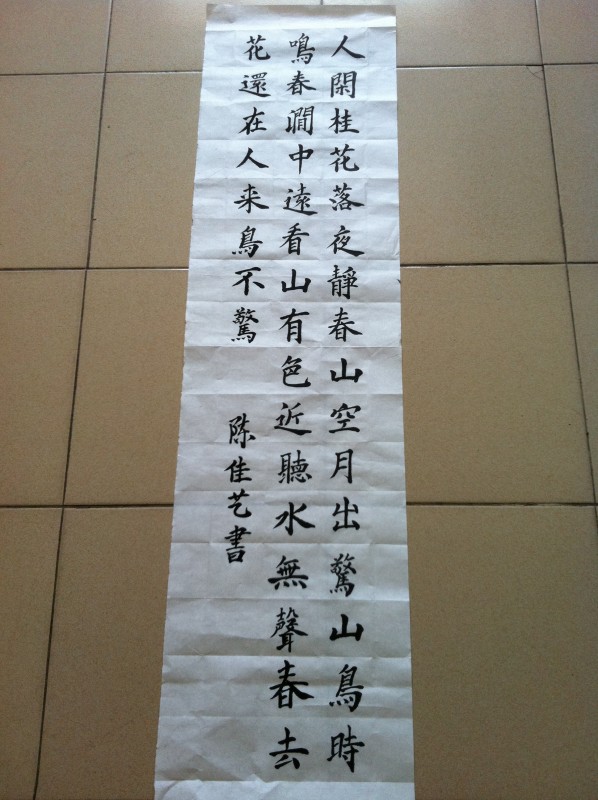 人閑桂花落夜靜春山空月出驚山鳥時
鳴春澗中遠看山有色近聽水無聲春去
花還在人来鳥不驚
陈佳艺書